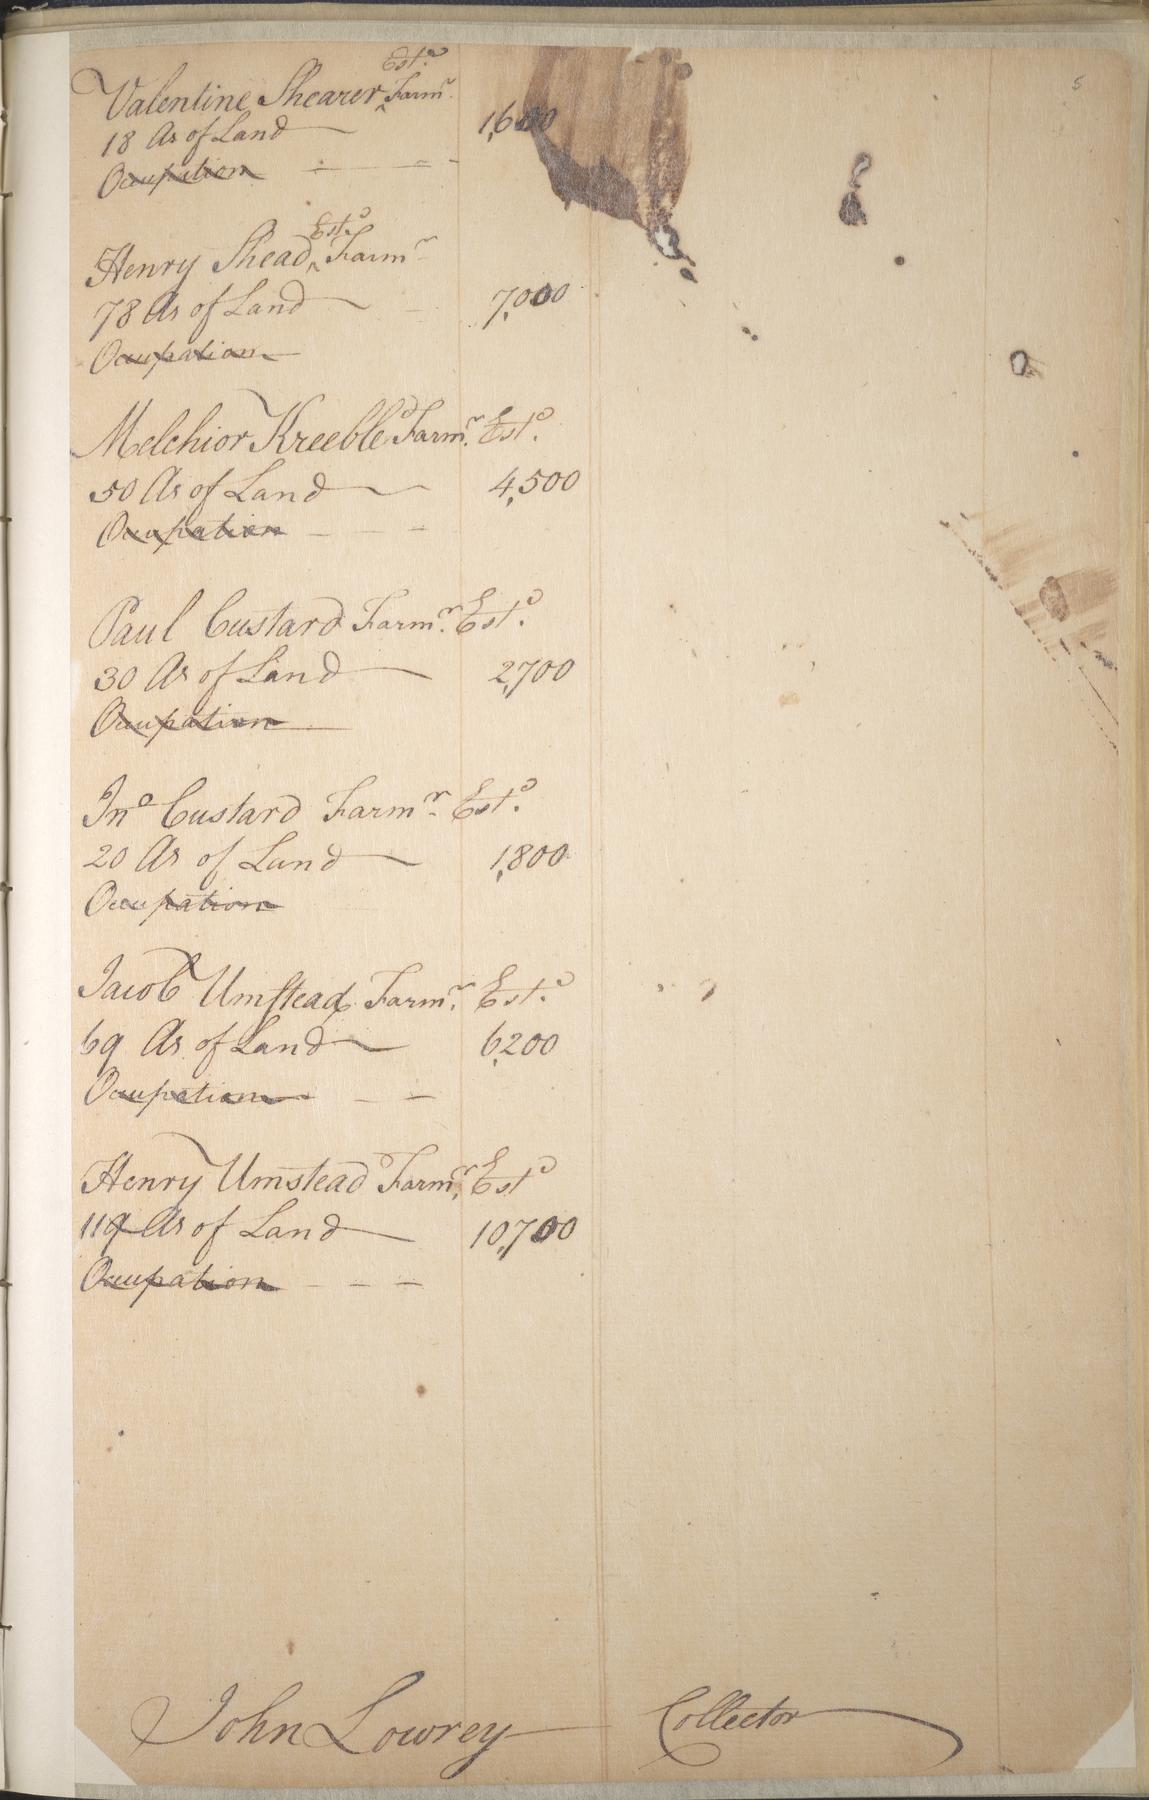 5
Est.d
Valentine Shearer ^ Farm.r
18 As of Land 1,600
Ocupation
Est.d
Henry Shead ^ Farm.r
78 As of Land 7,000
Ocupation
Melchior Kreeble Farm.r Est.d
50 As of Land 4,500
Ocupation
Paul Custard Farm.r Est.d
30 As of Land 2,700
Ocupation
Jno Custard Farm.r Est.d
20 As of Land 1,800
Ocupation
Jacob Umstead Farm.r Est.d
69 As of Land 6,200
Ocupation
Henry Umstead Farm.r Est.d
119 As of Land 10,700
Ocupation
John Lowrey Collector